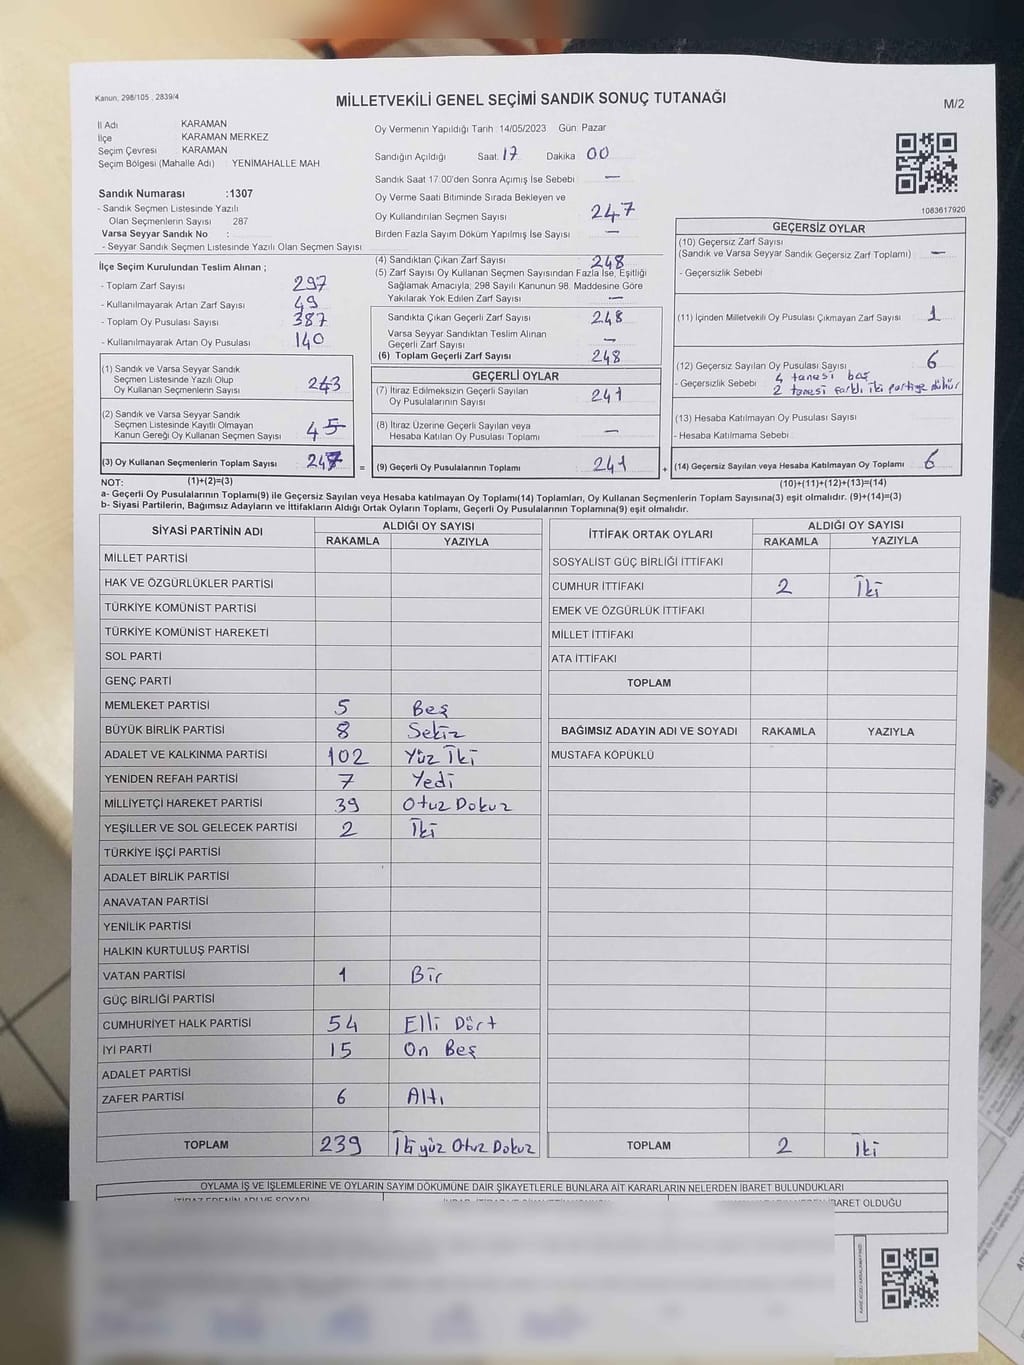 Kanun, 298/105 , 2839/4
MİLLETVEKİLİ GENEL SEÇİMİ SANDIK SONUÇ TUTANAĞI
M/2
İl Adı KARAMAN
İlçe KARAMAN MERKEZ
Seçim Çevresi KARAMAN
Seçim Bölgesi (Mahalle Adı) : YENİMAHALLE MAH
Sandık Numarası :1307
- Sandık Seçmen Listesinde Yazılı
Olan Seçmenlerin Sayısı 287
Varsa Seyyar Sandık No :
- Seyyar Sandık Seçmen Listesinde Yazılı Olan Seçmen Sayısı
İlçe Seçim Kurulundan Teslim Alınan ;
- Toplam Zarf Sayısı 297
- Kullanılmayarak Artan Zarf Sayısı 49
- Toplam Oy Pusulası Sayısı 387
- Kullanılmayarak Artan Oy Pusulası 140
(1) Sandık ve Varsa Seyyar Sandık
Seçmen Listesinde Yazılı Olup
Oy Kullanan Seçmenlerin Sayısı : 243
(2) Sandık ve Varsa Seyyar Sandık
Seçmen Listesinde Kayıtlı Olmayan
Kanun Gereği Oy Kullanan Seçmen Sayısı :
(3) Oy Kullanan Seçmenlerin Toplam Sayısı : 247 =
Oy Vermenin Yapıldığı Tarih : 14/05/2023 Gün: Pazar
Sandığın Açıldığı Saat: 17 Dakika : 00
Sandık Saat 17:00'den Sonra Açımış İse Sebebi : —
Oy Verme Saati Bitiminde Sırada Bekleyen ve
Oy Kullandırılan Seçmen Sayısı : 247
Birden Fazla Sayım Döküm Yapılmış İse Sayısı : —
(4) Sandıktan Çıkan Zarf Sayısı : 248
(5) Zarf Sayısı Oy Kullanan Seçmen Sayısından Fazla İse, Eşitliği
Sağlamak Amacıyla; 298 Sayılı Kanunun 98. Maddesine Göre
Yakılarak Yok Edilen Zarf Sayısı : —
Sandıkta Çıkan Geçerli Zarf Sayısı : 248
Varsa Seyyar Sandıktan Teslim Alınan
Geçerli Zarf Sayısı : —
(6) Toplam Geçerli Zarf Sayısı : 248
GEÇERLİ OYLAR
(7) İtiraz Edilmeksizin Geçerli Sayılan
Oy Pusulalarının Sayısı : 241
(8) İtiraz Üzerine Geçerli Sayılan veya
Hesaba Katılan Oy Pusulası Toplamı : —
(9) Geçerli Oy Pusulalarının Toplamı : 241 +
1083617920
GEÇERSİZ OYLAR
(10) Geçersiz Zarf Sayısı
(Sandık ve Varsa Seyyar Sandık Geçersiz Zarf Toplamı) : —
- Geçersizlik Sebebi :
(11) İçinden Milletvekili Oy Pusulası Çıkmayan Zarf Sayısı : 1
(12) Geçersiz Sayılan Oy Pusulası Sayısı : 6
- Geçersizlik Sebebi : 4 tanesi boş
2 tanesi farklı iki partiye
(13) Hesaba Katılmayan Oy Pusulası Sayısı :
- Hesaba Katılmama Sebebi :
(14) Geçersiz Sayılan veya Hesaba Katılmayan Oy Toplamı : 6
NOT: (1)+(2)=(3) (10)+(11)+(12)+(13)=(14)
a- Geçerli Oy Pusulalarının Toplamı(9) ile Geçersiz Sayılan veya Hesaba katılmayan Oy Toplamı(14) Toplamları, Oy Kullanan Seçmenlerin Toplam Sayısına(3) eşit olmalıdır. (9)+(14)=(3)
b- Siyasi Partilerin, Bağımsız Adayların ve İttifakların Aldığı Ortak Oyların Toplamı, Geçerli Oy Pusulalarının Toplamına(9) eşit olmalıdır.
SİYASİ PARTİNİN ADI ALDIĞI OY SAYISI
RAKAMLA YAZIYLA
MİLLET PARTİSİ
HAK VE ÖZGÜRLÜKLER PARTİSİ
TÜRKİYE KOMÜNİST PARTİSİ
TÜRKİYE KOMÜNİST HAREKETİ
SOL PARTİ
GENÇ PARTİ
MEMLEKET PARTİSİ 5 Beş
BÜYÜK BİRLİK PARTİSİ 8 Sekiz
ADALET VE KALKINMA PARTİSİ 102 Yüz İki
YENİDEN REFAH PARTİSİ 7 Yedi
MİLLİYETÇİ HAREKET PARTİSİ 39 Otuz Dokuz
YEŞİLLER VE SOL GELECEK PARTİSİ 2 İki
TÜRKİYE İŞÇİ PARTİSİ
ADALET BİRLİK PARTİSİ
ANAVATAN PARTİSİ
YENİLİK PARTİSİ
HALKIN KURTULUŞ PARTİSİ
VATAN PARTİSİ 1 Bir
GÜÇ BİRLİĞİ PARTİSİ
CUMHURİYET HALK PARTİSİ 54 Elli Dört
İYİ PARTİ 15 On Beş
ADALET PARTİSİ
ZAFER PARTİSİ 6 Altı
TOPLAM 239 İki yüz Otuz Dokuz
İTTİFAK ORTAK OYLARI ALDIĞI OY SAYISI
RAKAMLA YAZIYLA
SOSYALİST GÜÇ BİRLİĞİ İTTİFAKI
CUMHUR İTTİFAKI 2 İki
EMEK VE ÖZGÜRLÜK İTTİFAKI
MİLLET İTTİFAKI
ATA İTTİFAKI
TOPLAM
BAĞIMSIZ ADAYIN ADI VE SOYADI RAKAMLA YAZIYLA
MUSTAFA KÖPÜKLÜ
TOPLAM 2 İki
OYLAMA İŞ VE İŞLEMLERİNE VE OYLARIN SAYIM DÖKÜMÜNE DAİR ŞİKAYETLERLE BUNLARA AİT KARARLARIN NELERDEN İBARET BULUNDUKLARI
İBARET OLDUĞU